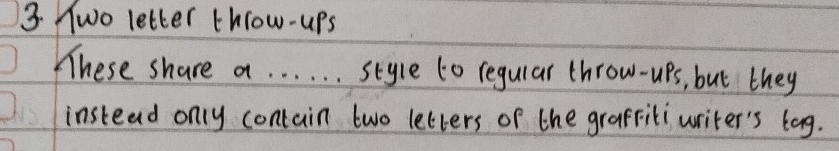 3. Two letter throw-ups
These share a ...... style to regular throw-ups, but they
instead only contain two letters of the graffiti writer's tag.